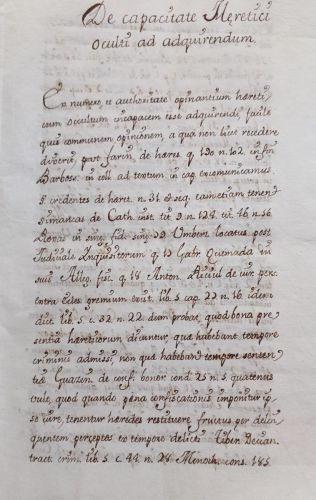 De capacitate Hæretici
oculti ad adquirendum.
Ex numero, et authoritate opinantium hæreti-
cum ocultum incapacem esse adquirendi, facile
quis communem opinionem, a qua non licet recedere
dixerit, post farin. de hæres. q. 190 n. 102 in fin
Barbos. in coll. ad textum in cap. excomunicamus
§ credentes de hæret. n. 31 et seq. eam etiam tenent
Simancas de Cath. inst. tit. 9. n. 128. tit. 16 n. 16
Roxas in sing. fid. sing. 59. Umbert. Locatus post
Judiciale Inquisitorum q. 19 Gabr. Quemada in
suis q. 18 Anton.
contra Edes premium lib. 5. cap. 22 n. 16 idem
dict. lib. 5. c. 32 n. 22. dum probat, quod bona præ-
sentia hæreticorum dicuntur, quæ habebant tempore
criminis admissi, non quæ habebant tempore senten-
tiæ Guazin. de conf. bonor. cond. 25 n. 5. quatenus
quod quando pæna confiscationis imponitur ip-
so iure, tenentur hæredes restituere fructus per delin-
quentem perceptos ex tempore delicti. Tiber. Decian.
tract. crim. lib. 5. c. 44. n. 28. Menoch. cons. 185.